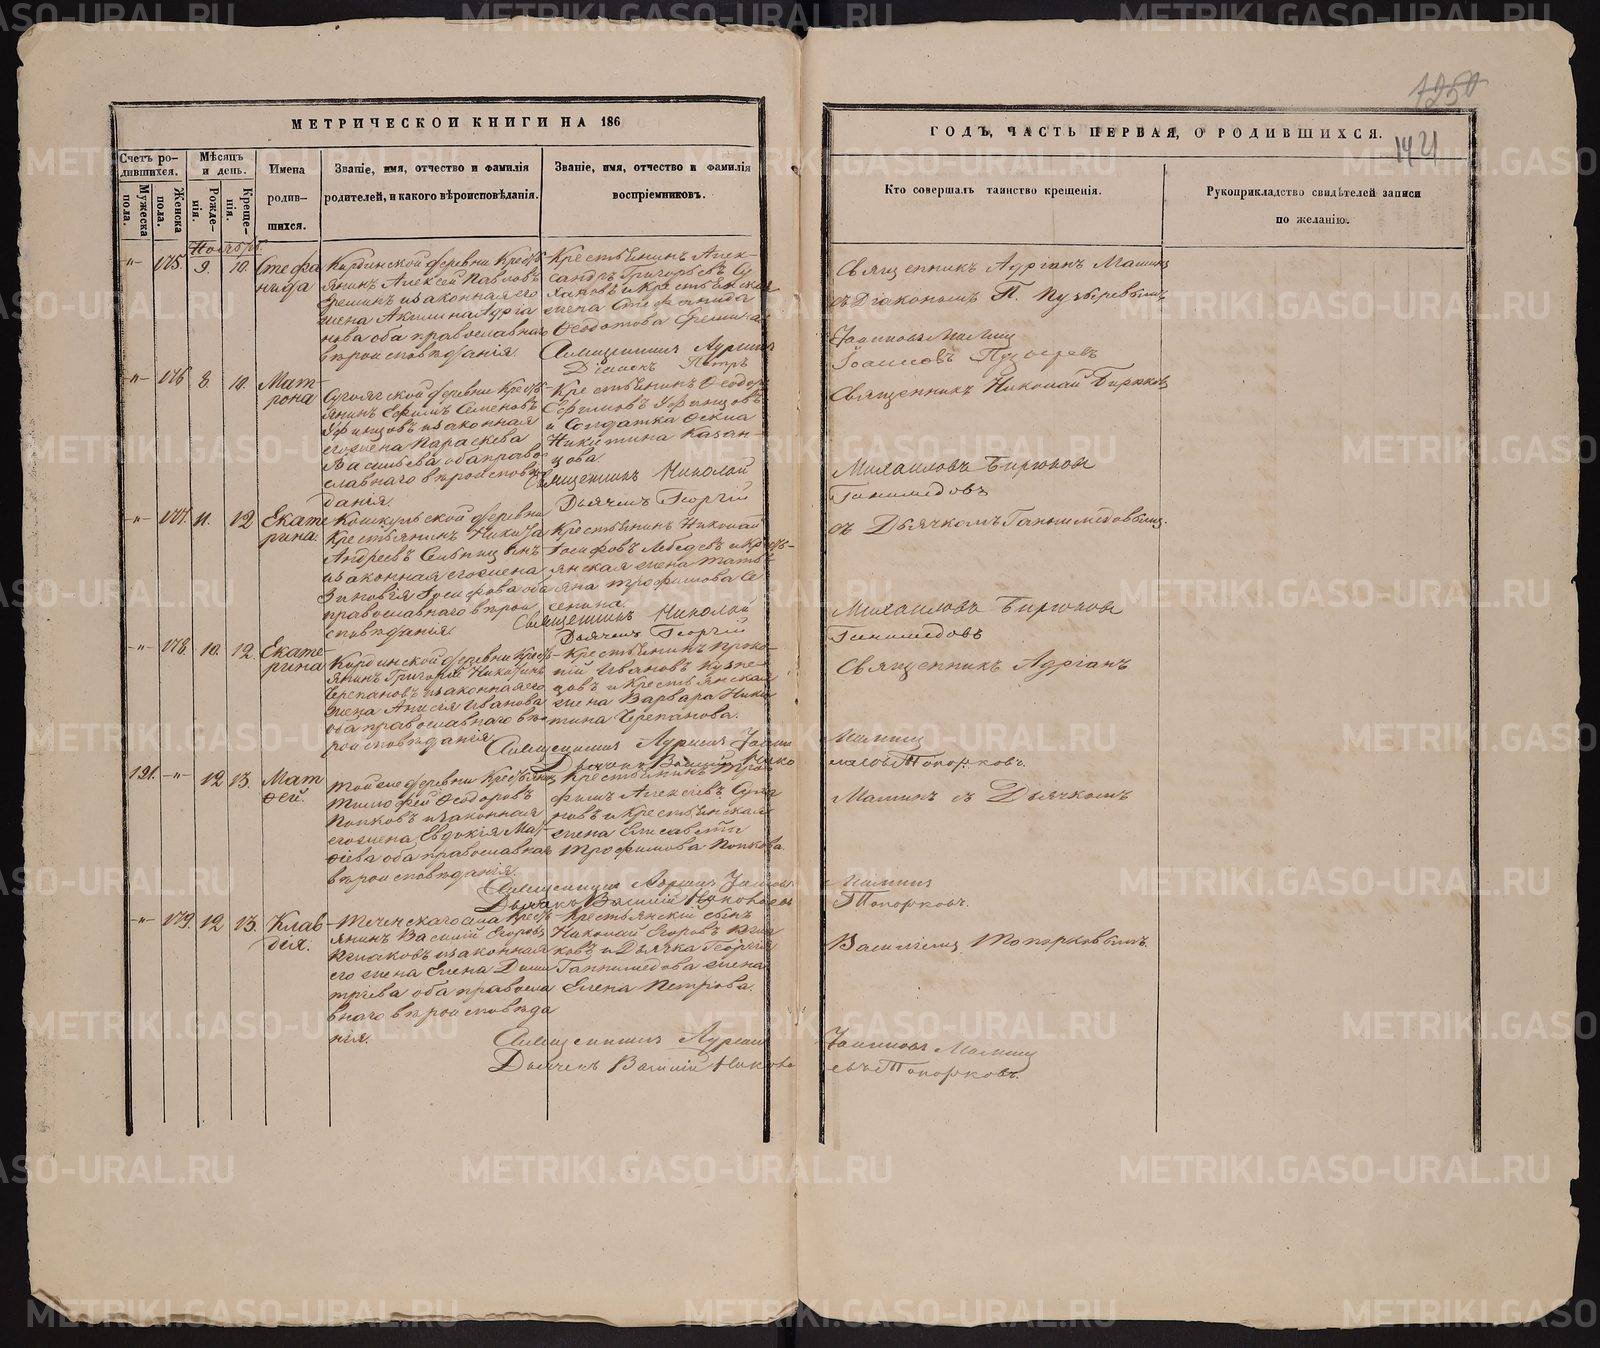 1250
1421
МЕТРИЧЕСКОЙ КНИГИ НА 186
ГОДЪ, ЧАСТЬ ПЕРВАЯ, О РОДИВШИХСЯ.
Счетъ ро-
дившихся.
Мужеска
пола.
Женска
пола.
Мѣсяцъ
и день.
Рожде-
нія.
Креще-
нія.
Имена
родив-
шихся.
Званіе, имя, отчество и фамилія
родителей, и какого вѣроисповѣданія.
Званіе, имя, отчество и фамилія
воспріемниковъ.
Кто совершалъ таинство крещенія.
Рукоприкладство свидѣтелей записи
по желанію.
Ноябрь
-"- 175. 9. 10.
Стефа
нида
Кирдинской деревни Кресть
янинъ Алексей Павловъ
и законная его
жена Акилина Адріа
нова оба православнаго
вѣроисповѣданія.
Крестьянинъ Алек-
сандръ Григорьевъ Су
хановъ и Крестьянская
жена Стефанида
Ѳеодотова
Священникъ Адріанъ
Дьяконъ Петръ
Священникъ Адріанъ Маминъ
съ Діакономъ П. Пузыревымъ
Іоанновъ Маминъ
Іоанновъ Пузыревъ
-"- 176 8 10.
Мат
рона
деревни Кресть
янинъ Ефимъ Семеновъ
Уфинцовъ и законная
его жена Параскева
Васильева оба право
славнаго вѣроисповѣ
данія.
Крестьянинъ Ѳеодоръ
Ефимовъ Уфинцовъ
и Солдатка
Никитина Казан-
цова
Священникъ Николай
Дьячекъ Георгій
Священникъ Николай Бирюков
Михаиловъ Бирюков
Ганимедовъ
-"- 177. 11. 12
Екате
рина
деревни
Крестьянинъ Никита
Андреевъ
и законная его жена
Зиновія Іосифова оба
православнаго вѣрои
сповѣданія.
Крестьянинъ Николай
Іосифовъ Лебедевъ и Кресть-
янская жена Тать
яна Трофимова Се
Священникъ Николай
Дьячекъ Георгій
съ Дьячкомъ Ганимедовымъ.
Михаиловъ Бирюков
Ганимедовъ
-"- 178. 10. 12.
Екате-
рина
Кирдинской деревни Кресть-
янинъ Григорій Никитинъ
Черепановъ и законная его
жена Анисія Иванова
оба православнаго вѣ
роисповѣданія.
Крестьянинъ Проко-
пій Ивановъ Кузне-
цовъ и Крестьянская
жена Варвара Ники
тина Черепанова.
Священникъ Адріанъ Іоанн
Дьячекъ Василій Нико
Священникъ Адріанъ
Маминъ
лаевъ Топорковъ.
121. -"- 12 13.
Мат
ѳей.
той же деревни Крестьянинъ
Тимофей Ѳеодоровъ
Попковъ и законная
его жена Евдокія Мат-
ѳіева оба православнаго
вѣроисповѣданія.
Крестьянинъ Тро
фимъ Алексіевъ Суха
новъ и Крестьянская
жена Елисавета
Трофимова Попкова.
Священникъ Адріанъ Іоаннов
Дьячекъ Василій Николаевъ
Маминъ съ Дьячкомъ
Маминъ
Топорковъ.
-"- 179. 12 13.
Клав
дія.
Теченскаго села Кресть-
янинъ Василій Егоровъ
и законная
его жена Елена Дими
тріева оба правосла
внаго вѣроисповѣда
нія.
Крестьянскій сынъ
Николай Егоровъ
и Дьячка Георгія
Ганимедова жена
Елена Петрова.
Священникъ Адріанъ
Дьячекъ Василій Никола
Василіемъ Топорковымъ.
Іоанновъ Маминъ
евъ Топорковъ.
METRIKI.GASO-URAL.RU